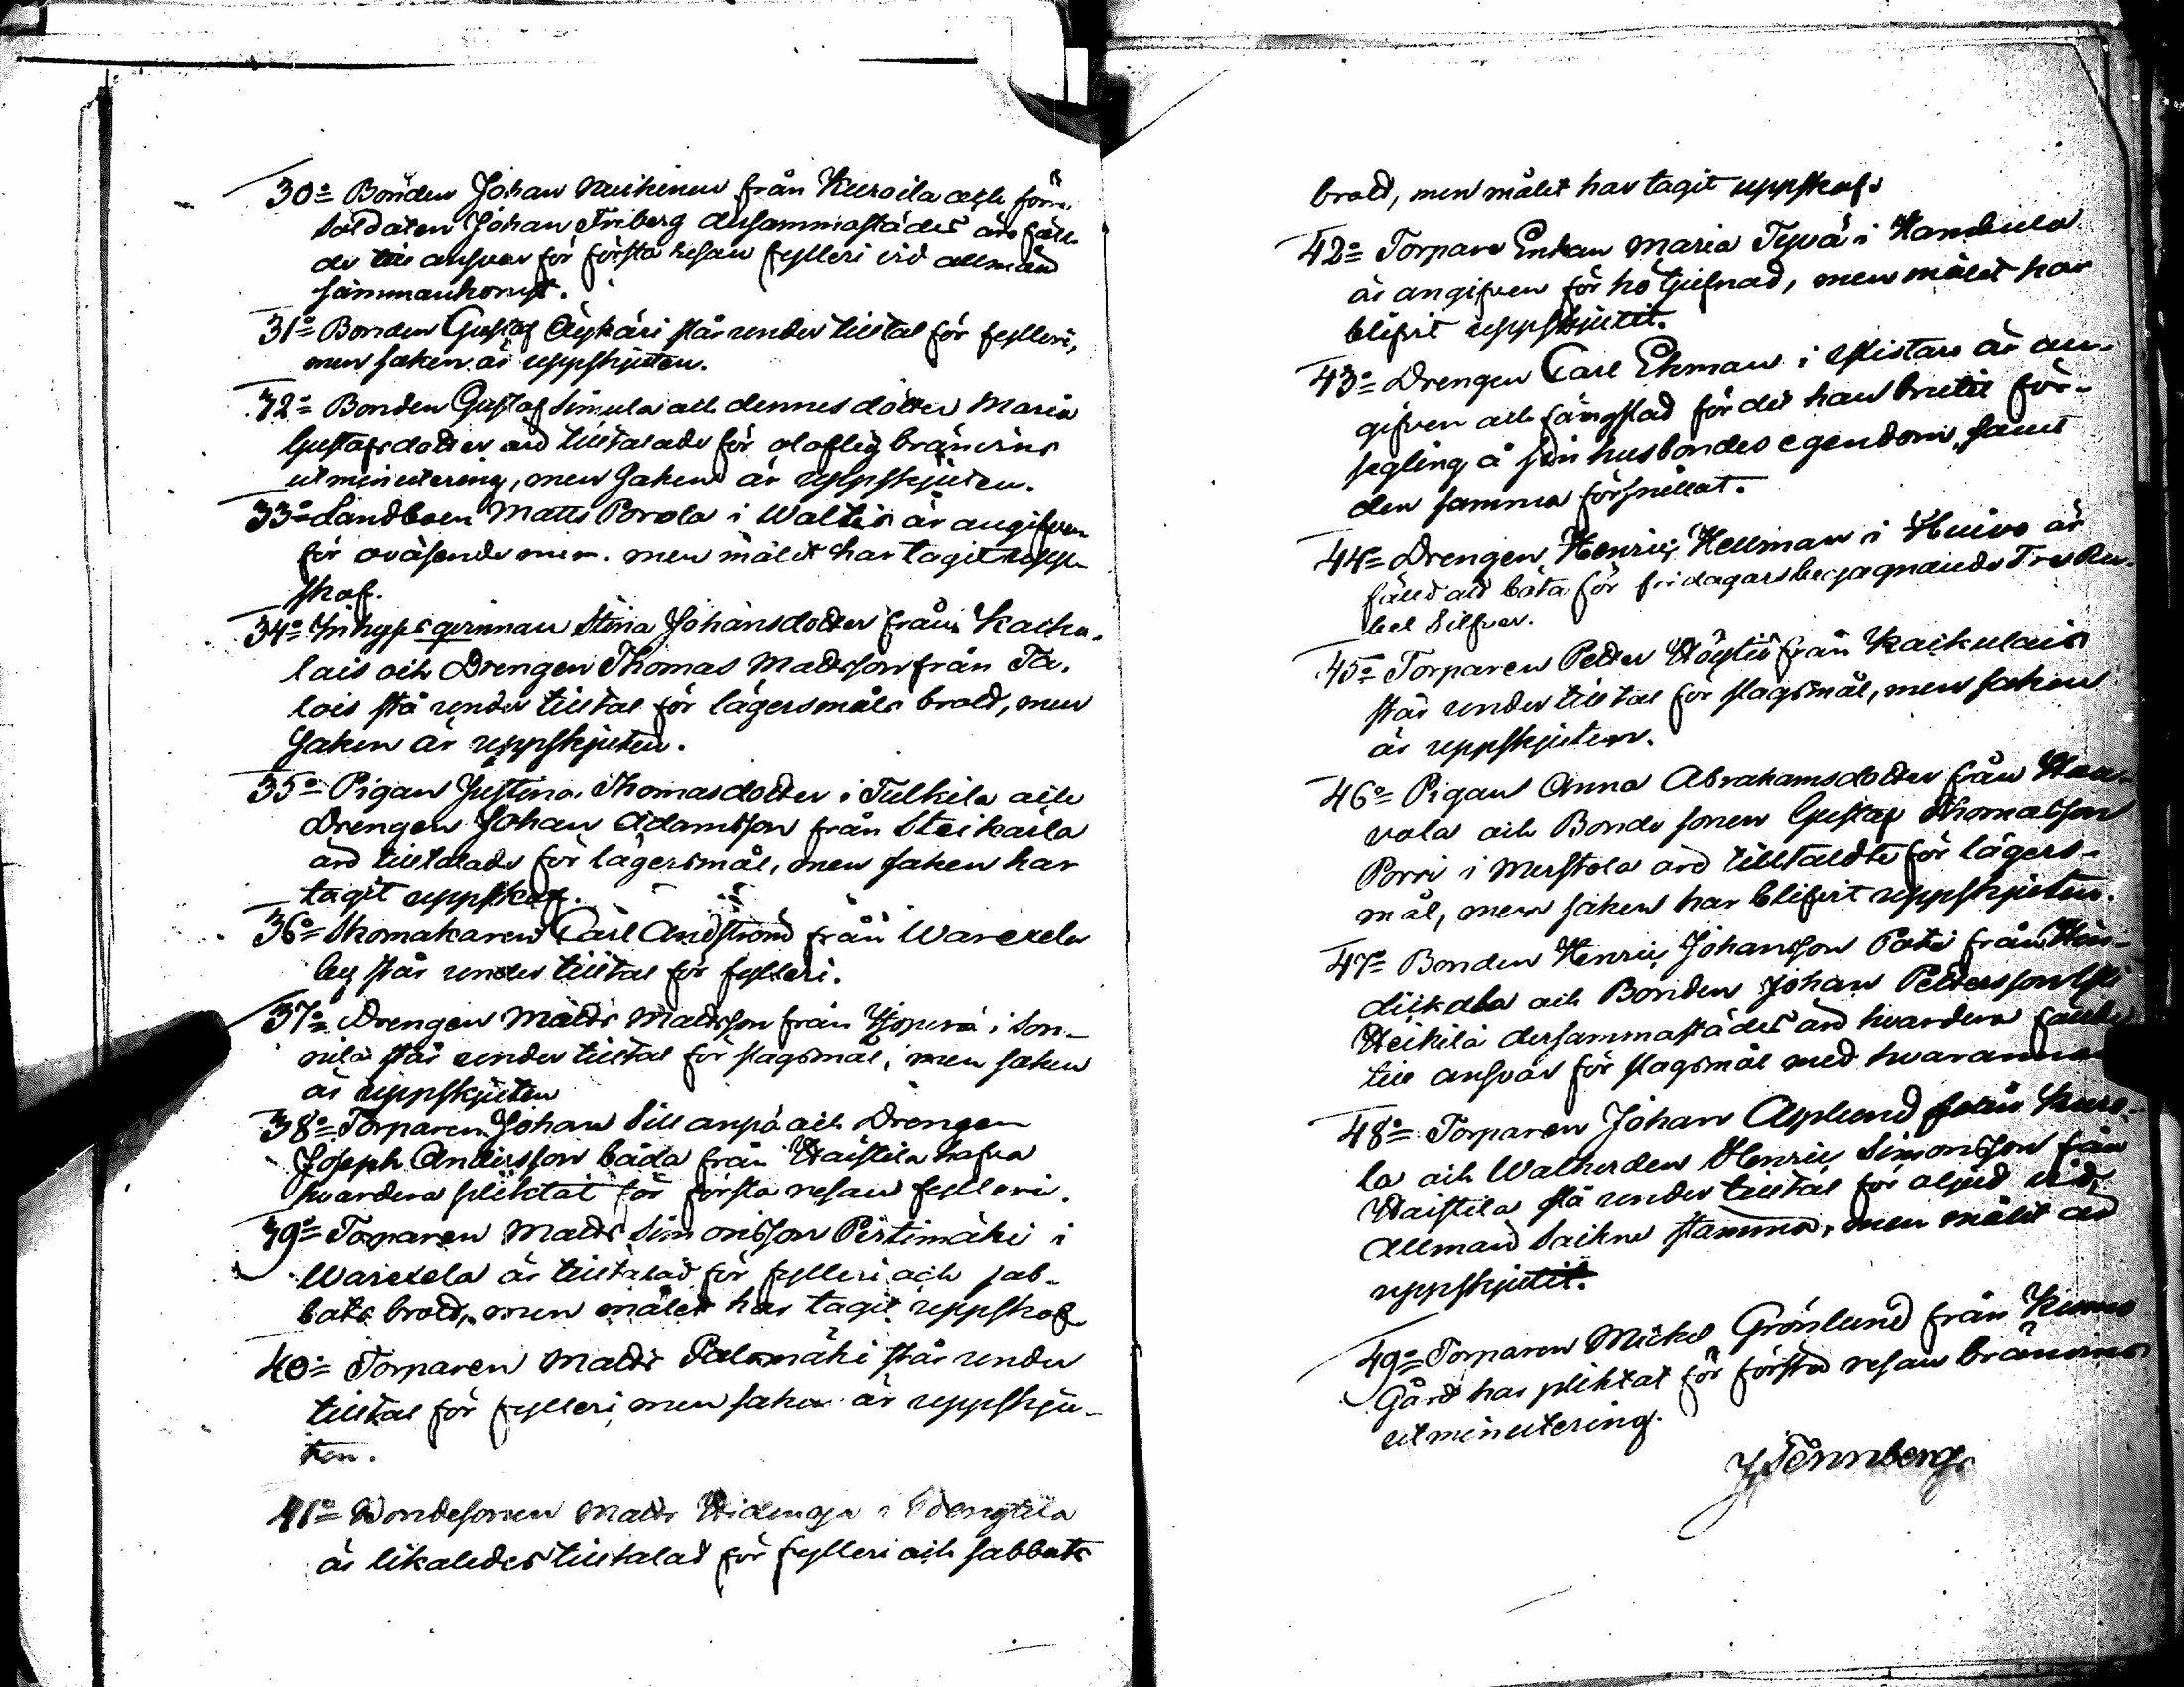 30o Bonden Johan från Kuroila och förra
Soldaten Johan Friberg dersammastädes äro fäll-
de till answar för första resan fylleri vid allmän
sammankomst.
31o Bonden Gustaf Äykäri står under tilltal för fylleri,
men saken är uppskjuten.
32o Bonden Gustaf Simula och dennes dotter Maria
Gustafsdotter äro tilltalade för olaflig bränvins
utminutering, men saken är uppskjuten.
33o Landboen Matts Porola i Waltis är angifven
för oväsende mm. men målet har tagit upp-
skof.
34o Inhyses qvinnan Stina Johansdotter från Kaiku-
lais och Drengen Thomas Mattsson från Ta-
lois stå under tilltal för lägersmåls brott, men
saken är uppskjuten.
35o Pigan Justina Thomasdotter i Tulkila och
Drengen Johan Adamsson från Steikarla
äro tilltalade för lägersmål, men saken har
tagit uppskof.
36o Skomakaren Carl Andström från Warexela
by står under tilltal för fylleri.
37o Drengen Matts Mattsson från i Son-
nila står under tilltal för slagsmål, men saken
är uppskjuten
38o Torparen Johan Sillanpä och Drengen
Joseph Andersson båda från Waistila hafva
hvardera pliktat för första resan fylleri.
39o Torparen Matts Simonsson Pirtimäki i
Warexela är tilltalad för fylleri och sab-
bats brott, men målet har tagit uppskof
40o Torparen Matts Palomäki står under
tilltal för fylleri men saken är uppskju-
ten.
41o Bondesonen Matts i
är likaledes tilltalad för fylleri och sabbats
brott, men målet har tagit uppskof.
42o Torpare Enkan Maria Tyvä i Hambula
är angifven för hö tjufnad, men målet har
blifvit uppskjutit.
43o Drengen Carl Ekman i Ylistaro är an-
gifven och fängslad för det han brutit för-
segling å sin husbondes egendom, samt
den samma förspillat.
44o Drengen Henric Hellman i Huivo är
fälld att böta för fridagars begagnande Tre Ru-
bel Silfver.
45o Torparen Petter Höyttiö från Kaikulais
står under tilltal för slagsmål, men saken
är uppskjuten.
46o Pigan Anna Abrahamsdotter från Haa-
vola och Bonde sonen Gustaf Thomasson
Porri i Merstola äro tilltaldte för lägers-
mål, men saken har blifvit uppskjuten.
47o Bonden Henric Johansson Pati från Hai-
dickala och Bonden Johan Pettersson
Heikilä dersammastädes äro hvardera fällde
till answar för slagsmål med hvarannan
48o Torparen Johan Asplund från Kuro-
la och Walherden Henric Simonsson från
Waistila stå under tilltal för oljud vid
Allmän Sockne stämma, men målet är
uppskjutit.
49o Torparen Mickel Grönlund från Kumo
Gård har pliktat för första resan bränvins
utminutering.
J Tennberg.